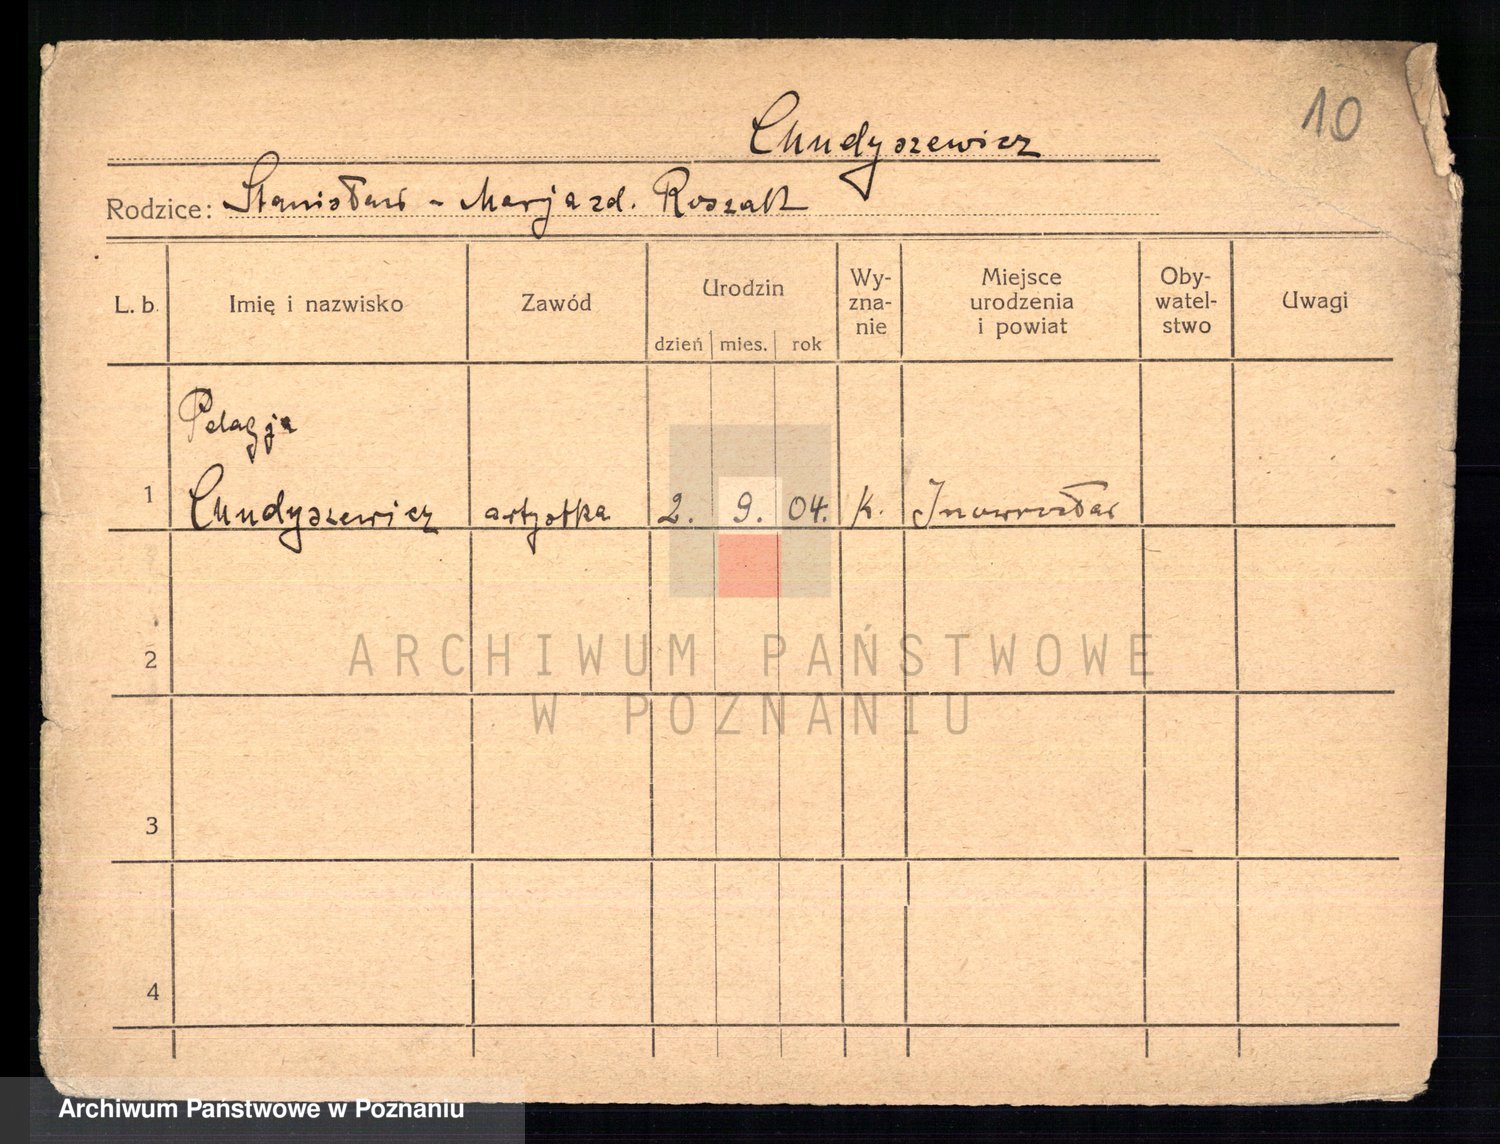 10
Chudyszewicz
Rodzice: Stanisław - Marja zd. Roszak
L. b. Imię i nazwisko Zawód Urodzin Wy-zna-nie Miejsce urodzenia i powiat Oby-watel-stwo Uwagi
dzień mies. rok
Pelagja
1 Chudyszewicz artystka 2. 9. 04. k. Inowrocław
2
ARCHIWUM PAŃSTWOWE
W POZNANIU
3
4
Archiwum Państwowe w Poznaniu